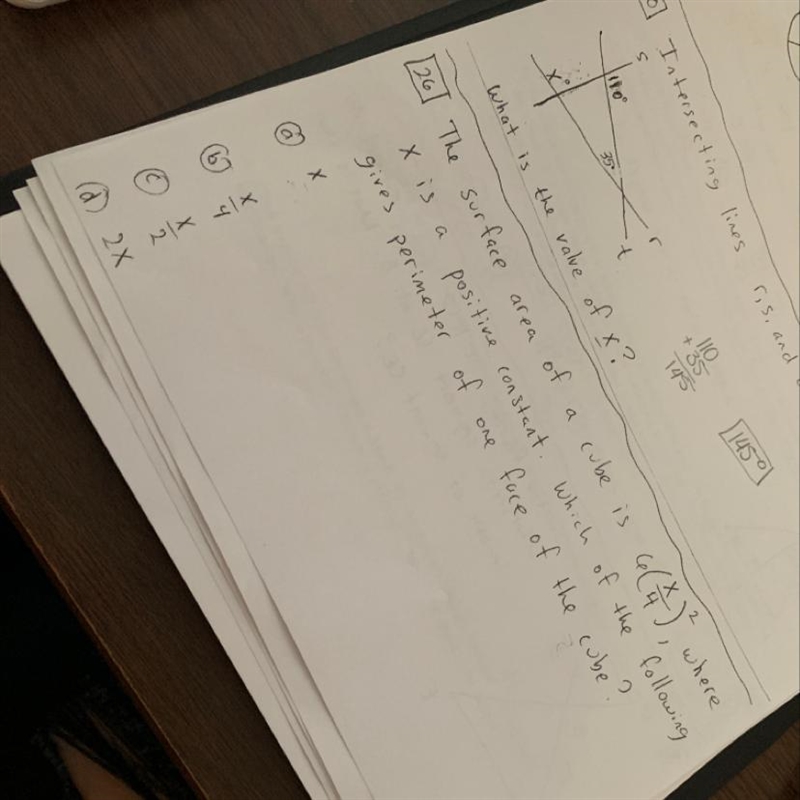 Intersecting lines r, s, and
s
110°
x°
35°
r
t
110
+35
145
145°
What is the value of x?
26 The surface area of a cube is 6(x/4)², where
x is a positive constant. Which of the following
gives perimeter of one face of the cube?
(a) x
(b) x/4
(c) x/2
(d) 2x